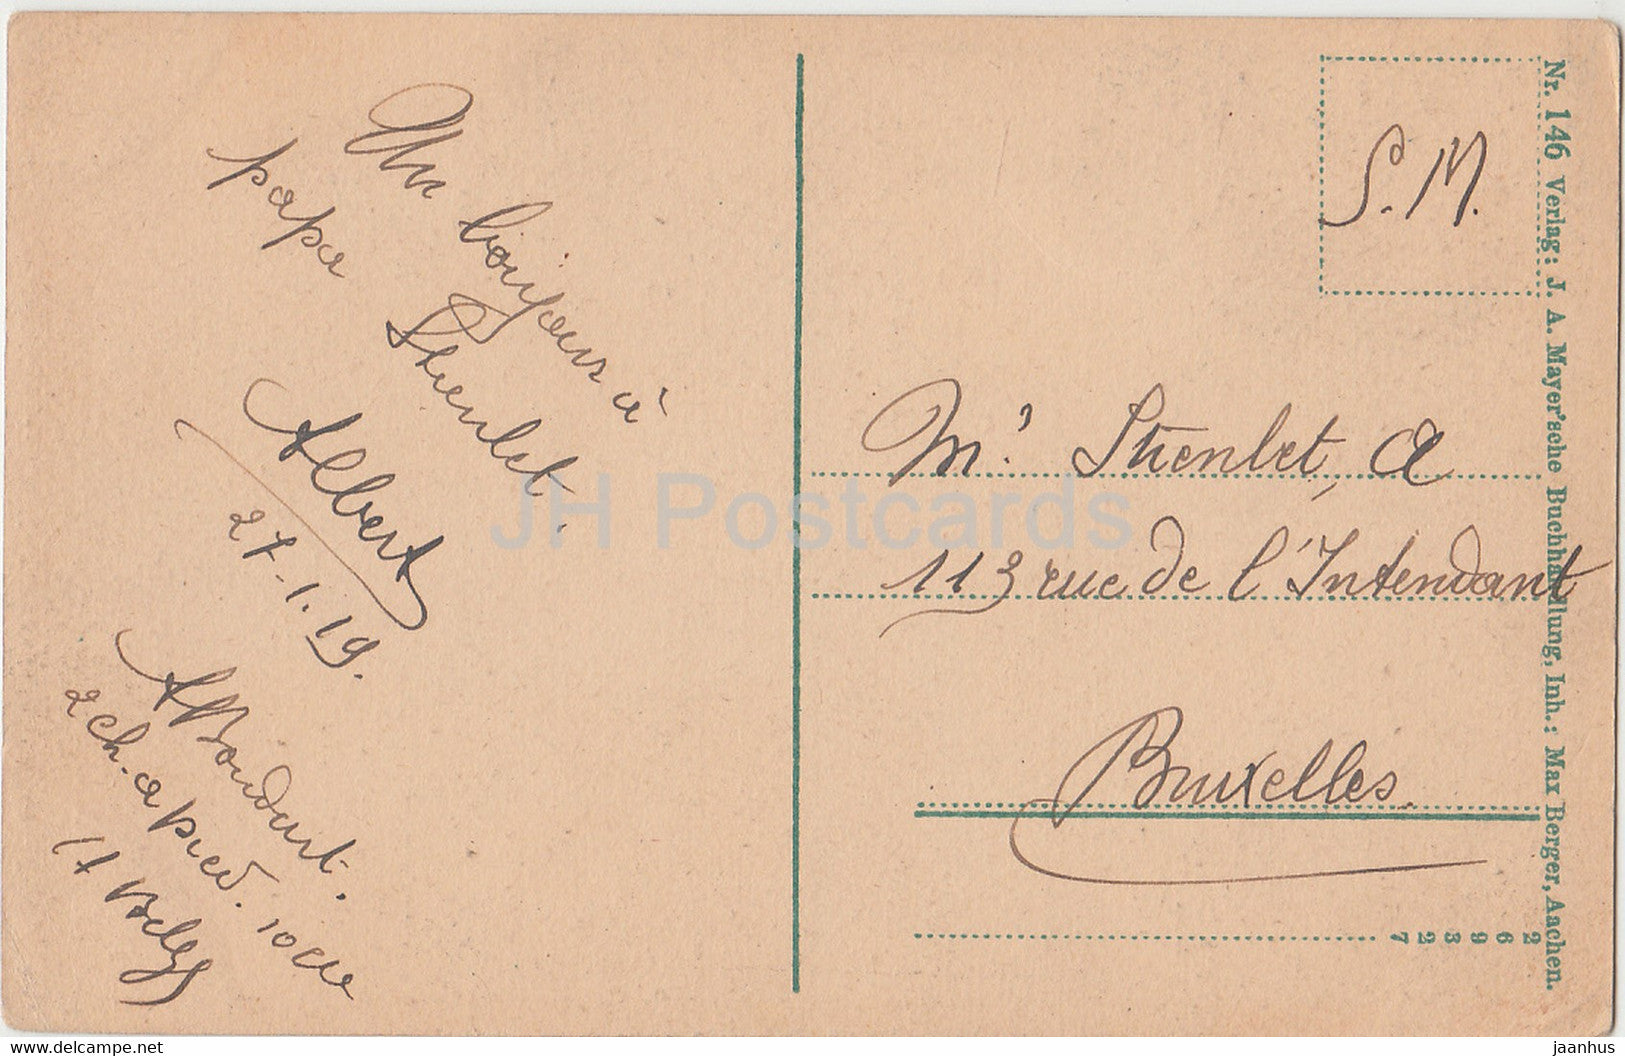 Un bonjour à
papa Stienlet.
Albert
27-1.19.
A Bondart.
2 ch. a pied. 10 cie
A Belge
S. M.
Mr. Stienlet, A
113 rue de l'Intendant
Bruxelles.
Nr. 146 Verlag: J. A. Mayer'sche Buchhandlung, Inh.: Max Berger, Aachen.
2 6 9 3 2 7
JH Postcards
www.delcampe.net
jaanhus